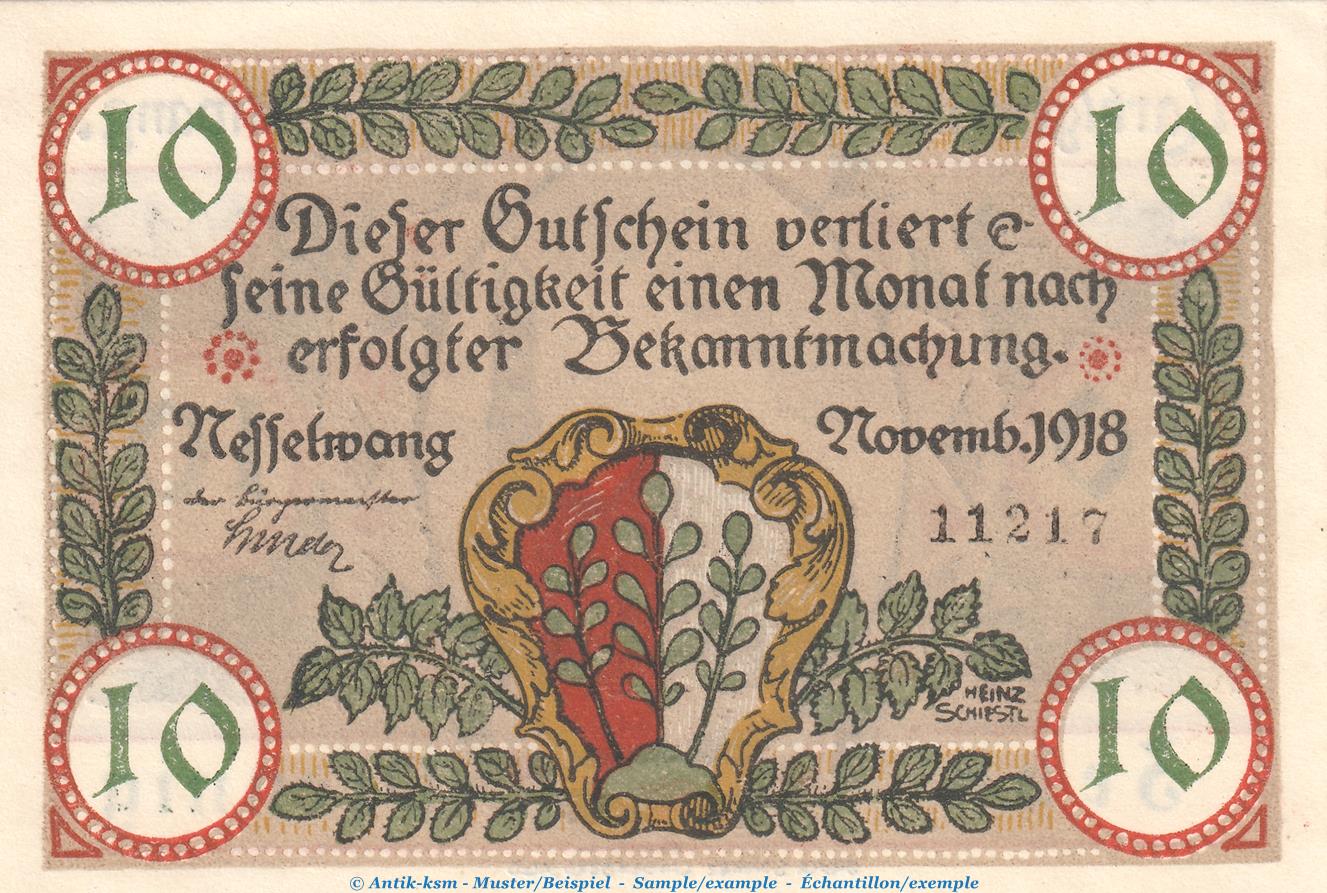 10
10
Dieser Gutschein verliert
seine Gültigkeit einen Monat nach
erfolgter Bekanntmachung.
Nesselwang
Novemb. 1918
der Bürgermeister
11217
HEINZ
SCHIESTL
10
10
© Antik-ksm - Muster/Beispiel - Sample/example - Échantillon/exemple